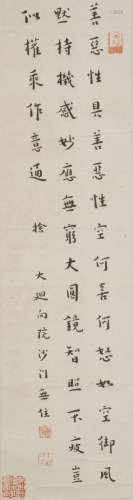 善惡性具善惡性空何善何惡如空御風
默持機感妙應無窮大圓鏡智照不疲豈
似權乘作意通 捨
大迴向院沙門無住